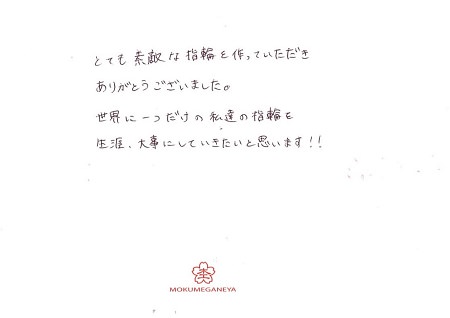 とても素敵な指輪を作っていただき
ありがとうございました。
世界に一つだけの私達の指輪を
生涯、大事にしていきたいと思います!!
MOKUMEGANEYA